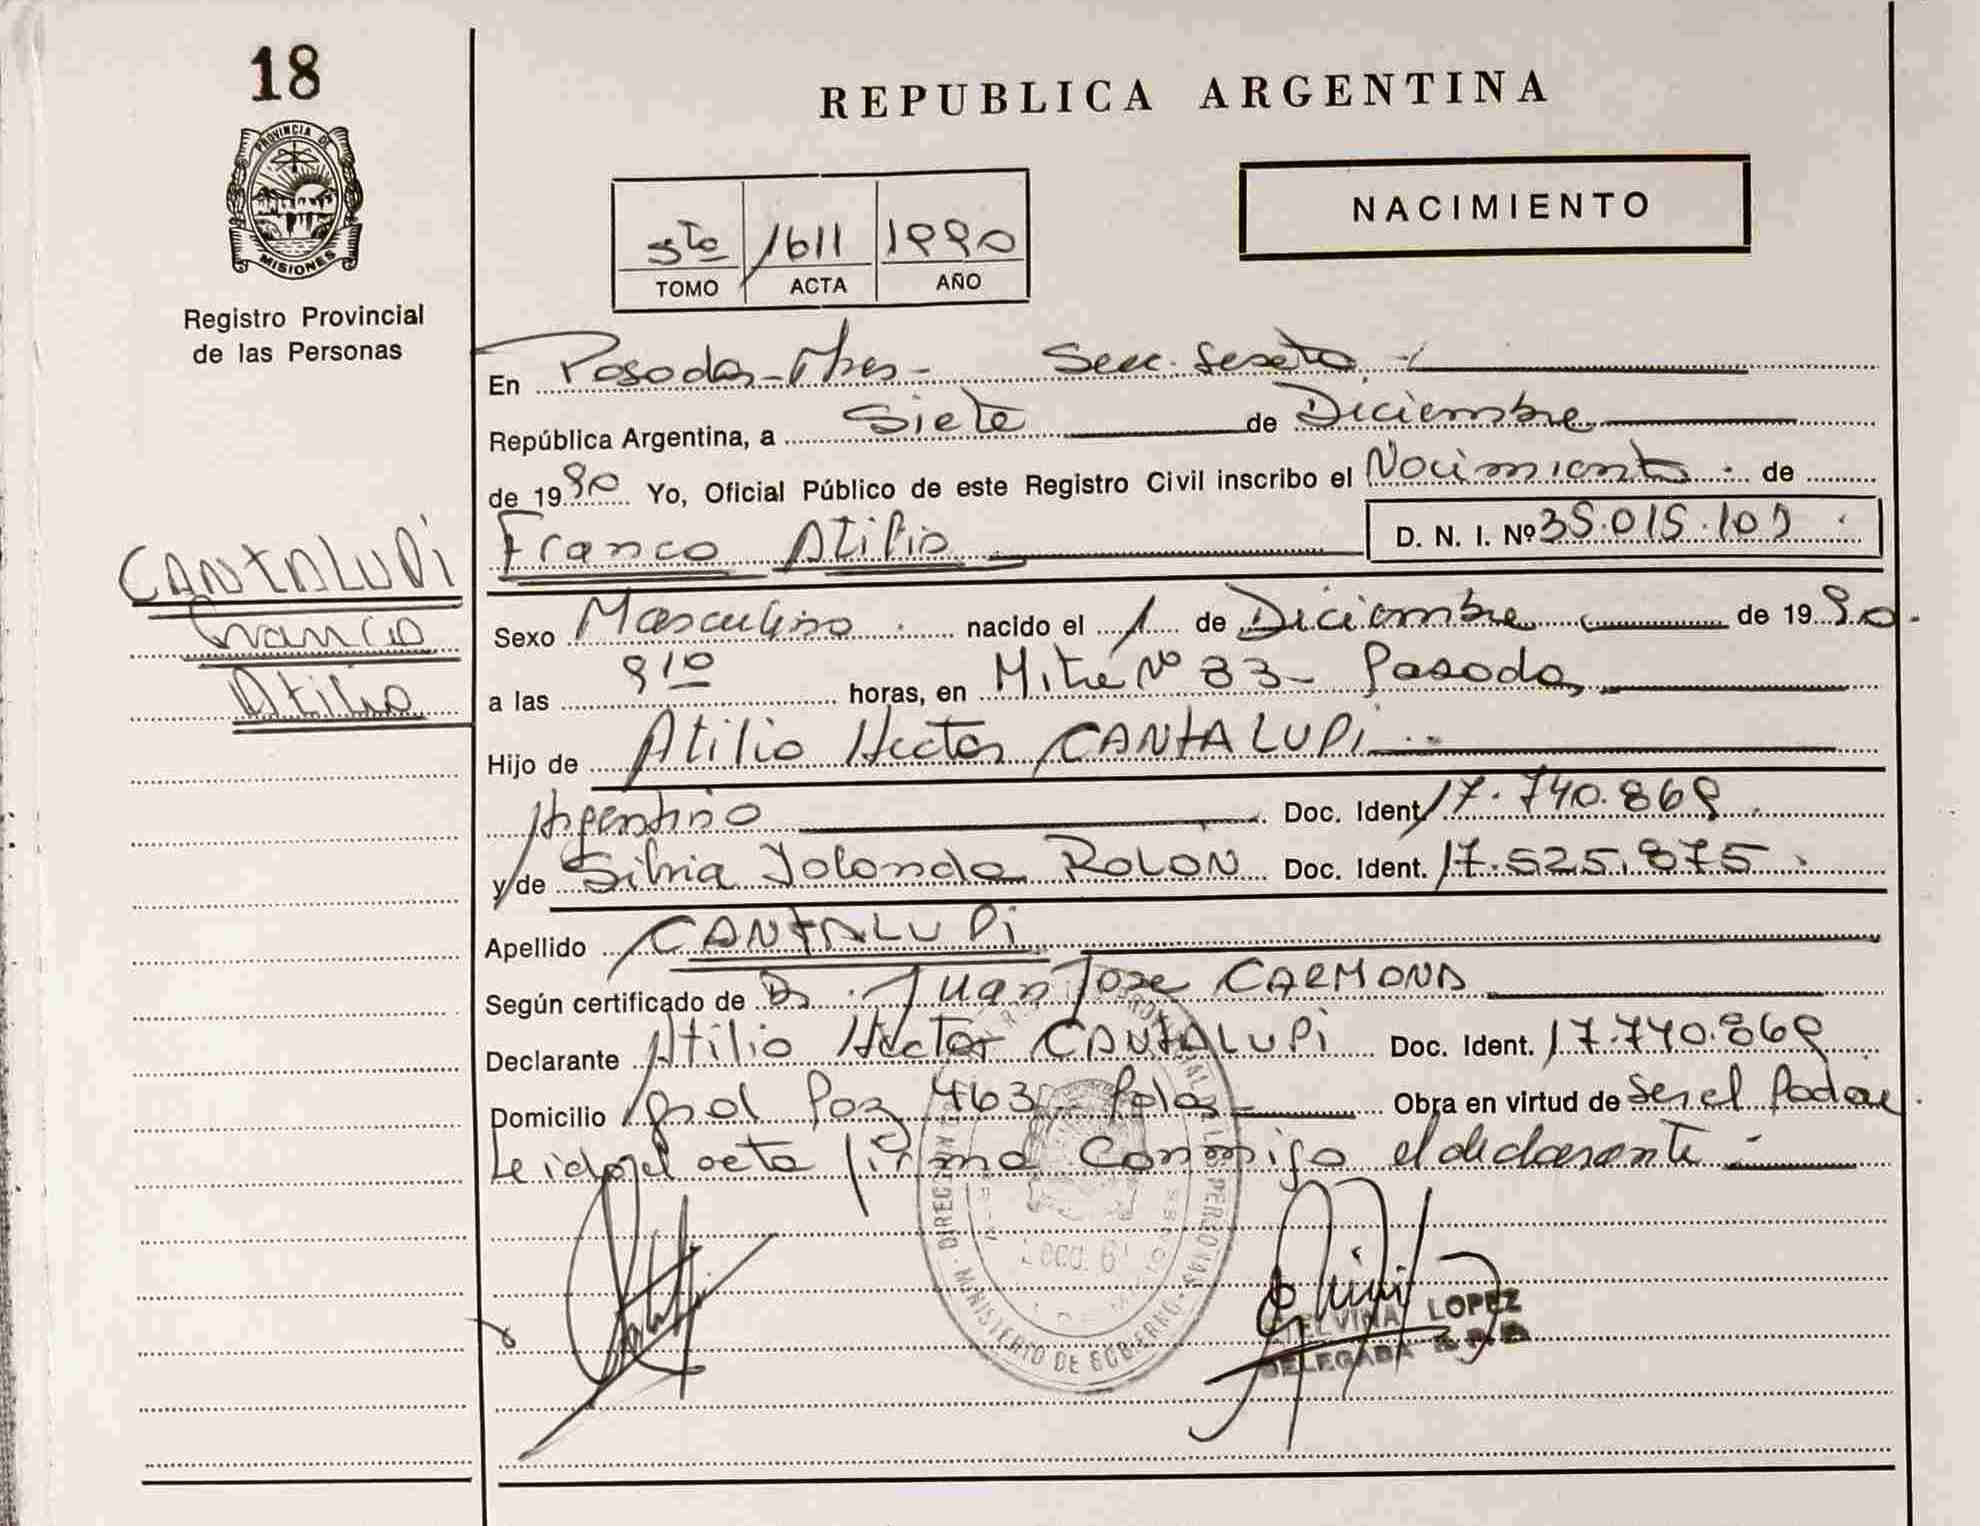 18
PROVINCIA DE
MISIONES
Registro Provincial
de las Personas
REPUBLICA ARGENTINA
NACIMIENTO
5to 1611 1990
TOMO ACTA AÑO
En Posadas-Mnes- Secc. Sexta
República Argentina, a Siete de Diciembre
de 1990 Yo, Oficial Público de este Registro Civil inscribo el Nacimiento de
Franco Atilio D. N. I. Nº 35.015.109
CANTALUPI
Franco
Atilio
Sexo Masculino nacido el 1 de Diciembre de 1990.
a las 9 10 horas, en Mitre Nº 83- Posadas
Hijo de Atilio Hector CANTALUPI
Argentino Doc. Ident 17.740.869
y de Silvia Yolanda ROLON Doc. Ident. 17.525.875
Apellido CANTALUPI
Según certificado de Dr. Juan Jose CARMONA
Declarante Atilio Hector CANTALUPI Doc. Ident. 17.740.869
Domicilio Gral Paz 463- Pdas- Obra en virtud de Ser el Padre.
Leida el acta firma conmigo el declarante
MINISTERIO DE GOBIERNO
ETELVINA LOPEZ
DELEGADA